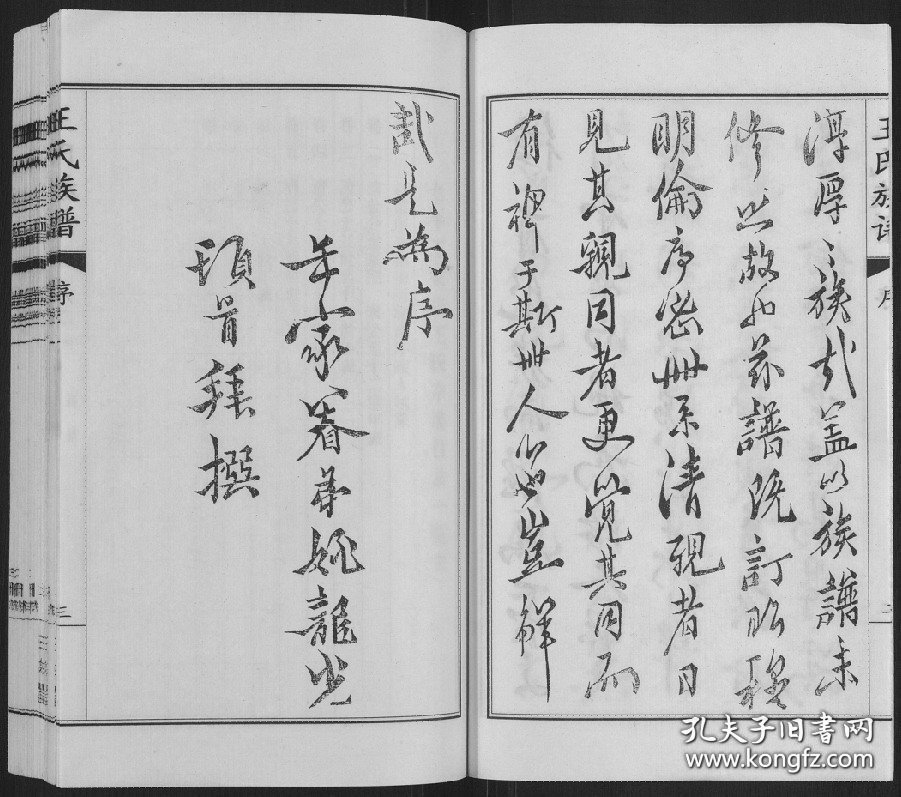 淳厚之族哉盖以族譜未
修之故也兹譜既訂昭穆
明倫序密世系清親者日
見其親同者更覺其同而
有裨于斯世人心也豈鮮
哉是為序
年家眷弟姚龍光
頓首拜撰
王氏族譜
序
三
王氏族譜
序
孔夫子旧書网
www.kongfz.com